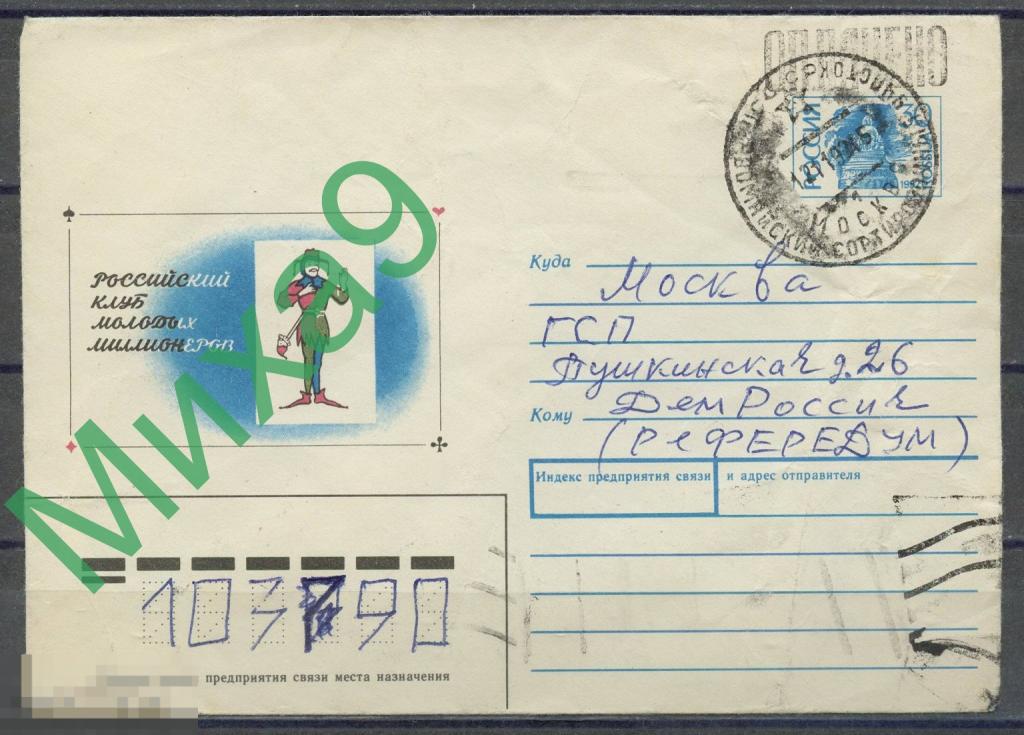 ОПЛАЧЕНО
РОССИЯ
МОСКВА
РОССИЙСКИЙ
КЛУБ
МОЛОДЫХ
МИЛЛИОНЕРОВ
Миха9
Куда Москва
ГСП
Пушкинская д. 26
Кому ДемРоссия
(РЕФЕРЕДУМ)
Индекс предприятия связи и адрес отправителя
103790
предприятия связи места назначения